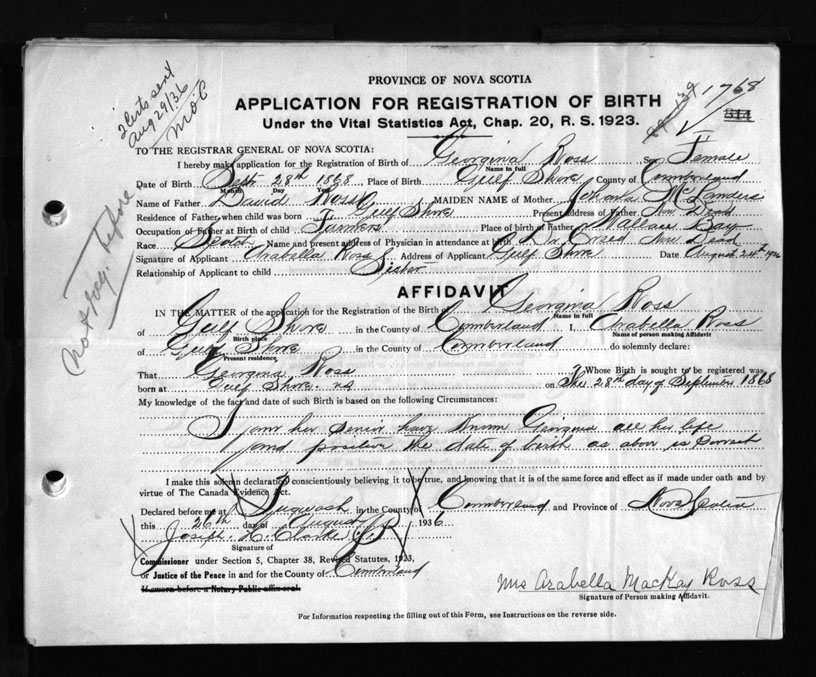 2 Certs sent
Aug 29/36
Not reg. before
1768
PROVINCE OF NOVA SCOTIA
APPLICATION FOR REGISTRATION OF BIRTH
Under the Vital Statistics Act, Chap. 20, R. S. 1923.
TO THE REGISTRAR GENERAL OF NOVA SCOTIA:
I hereby make application for the Registration of Birth of Georgina Ross Sex Female
Name in full
Date of Birth Sept. 28th 1868 Place of Birth Gulf Shore County of Cumberland
Month Day Year
Name of Father David Ross MAIDEN NAME of Mother
Residence of Father when child was born Gulf Shore Present address of Father Now Dead
Occupation of Father at Birth of child Farmers Place of birth of Father Wallace Bay
Race Scotch Name and present address of Physician in attendance at birth Dr. Creed Now Dead
Signature of Applicant Arabella Ross Address of Applicant Gulf Shore Date August 24th
Relationship of Applicant to child Sister
AFFIDAVIT
IN THE MATTER of the application for the Registration of the Birth of Georgina Ross
Name in full
of Gulf Shore in the County of Cumberland I, Arabella Ross
Birth place Name of person making Affidavit
of Gulf Shore in the County of Cumberland do solemnly declare:
Present residence
That Georgina Ross Whose Birth is sought to be registered was
born at Gulf Shore. NS on The 28th day of September 1868
My knowledge of the fact and date of such Birth is based on the following Circumstances:
I am her Senior have known Georgina all her life
and positive the date of birth as above is Correct
I make this solemn declaration conscientiously believing it to be true, and knowing that it is of the same force and effect as if made under oath and by
virtue of The Canada Evidence Act.
Declared before me at Pugwash in the County of Cumberland and Province of Nova Scotia
this 26th day of August 1936
Joseph L. Clarke J.P.
Signature of
Commissioner under Section 5, Chapter 38, Revised Statutes, 1923,
or Justice of the Peace in and for the County of Cumberland
If sworn before a Notary Public affix seal
Mrs Arabella MacKay Ross
Signature of Person making Affidavit.
For Information respecting the filling out of this Form, see Instructions on the reverse side.